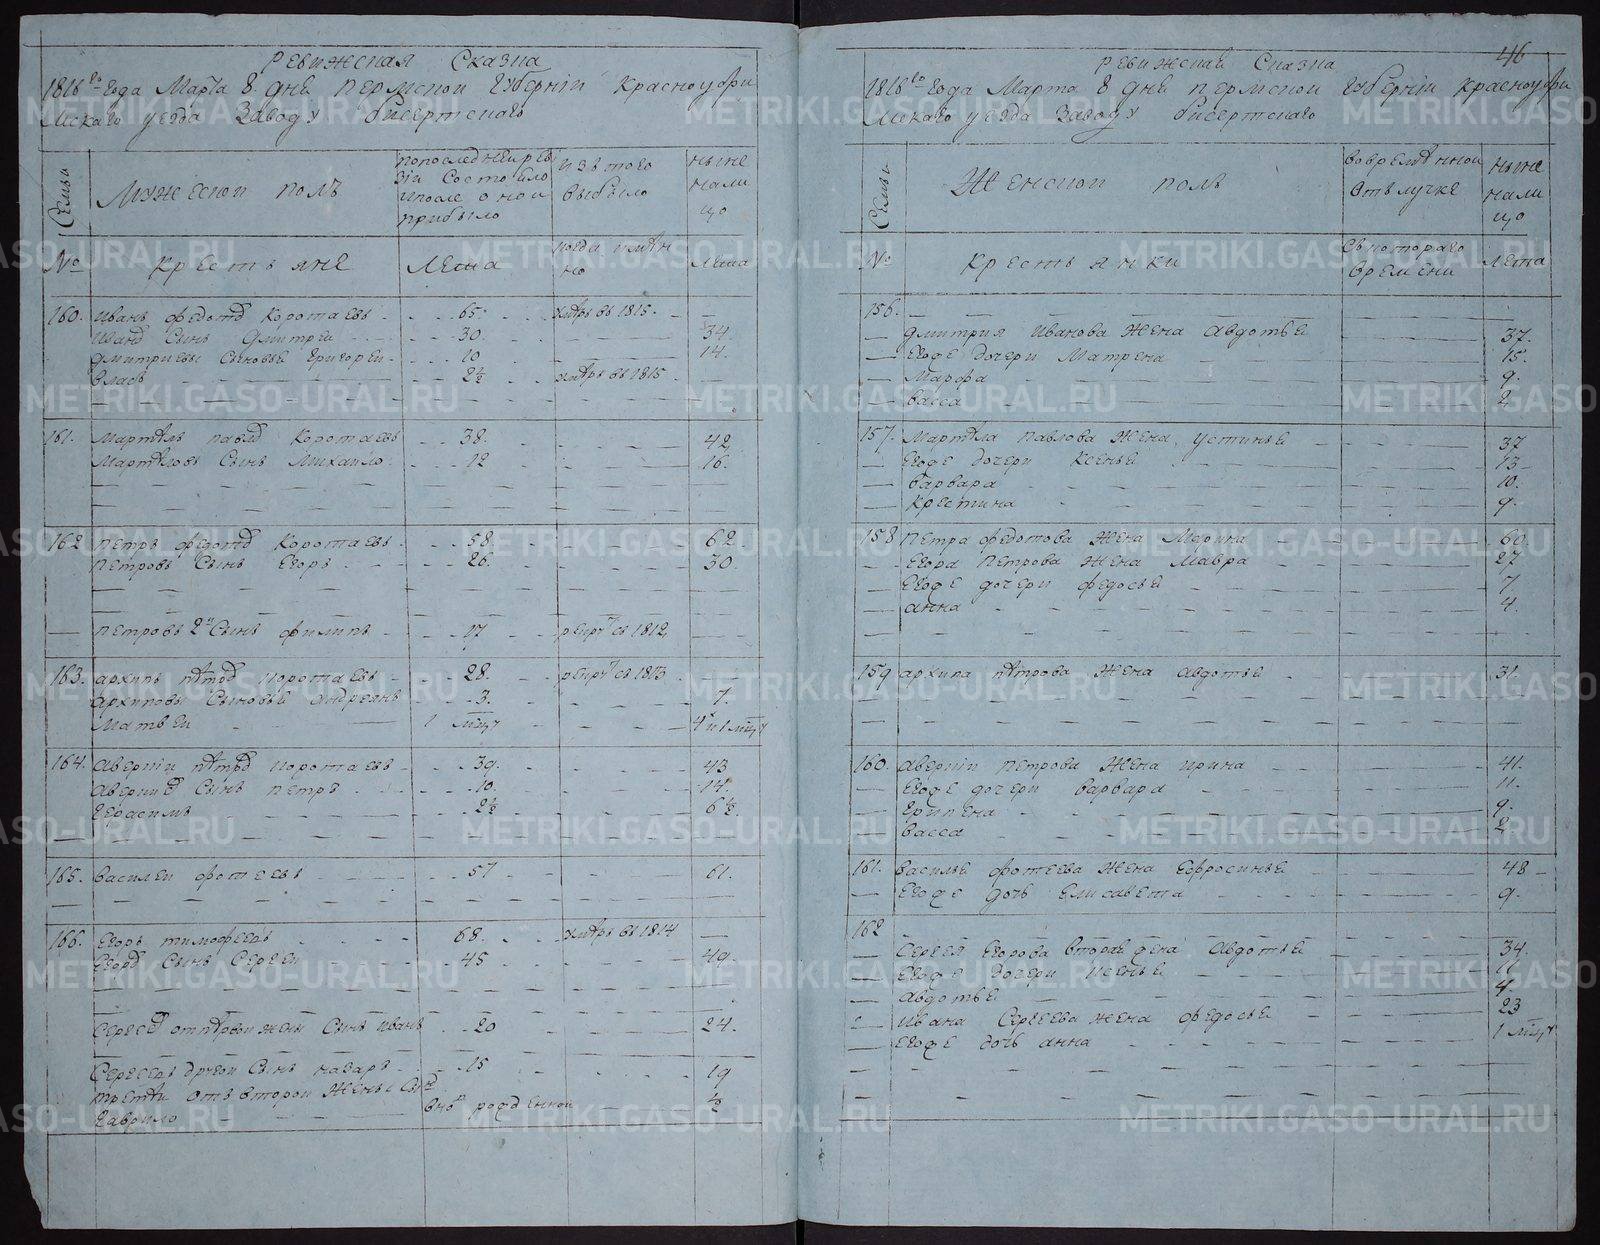 46
Ревижская Сказка
1816го Года Марта 8 дня Пермской Губернiи Красноуфи
мскаго уезда Заводу бисертскаго
Семьи
Мужескои полъ
по последней реви
зiи Состояло
и после оной
прибыло
изътого
выбыло
ныне
нали
цо
№
крестьяне
Лета
когда имянн
но
Лета
160. Иванъ федотовъ Коротаевъ 65. умре въ 1815.
Ивановъ Сынъ Дмитрей 30. 34
Дмитриевы Сыновья Григорей 10 14.
Власъ 2½ умре въ 1815
161. Мартемъ павловъ Коротаевъ 38. 42
Сынъ Михайло 12 16.
162 петръ федотовъ Коротаевъ 58. 62
петровъ Сынъ Егоръ 26. 30.
петровъ 2й Сынъ филипъ 17 рекрутъ 1812
163. архипъ петровъ коротаевъ 28. рекрутъ 1813
архиповы Сыновья андреянъ 3. 7.
Матвеи 1 мцъ 4 и 1 мцъ
164. аверкiи петровъ коротаевъ 39. 43
Сынъ петръ 10. 14.
Герасимъ 2½ 6½.
165. Василеи фотеевъ 57 61.
166. Егоръ тимофеевъ 68. умре въ 1814
Егоровъ Сынъ Сергеи 45 49
Сергеевъ отпервои жены Сынъ иванъ 20 24.
Сергеевъ другой Сынъ назаръ 15 19
третеи отъ второи жены Сынъ
Гаврило вновь рожденнои ½
Ревижская Сказка
1816го Года Марта 8 дня пермской Губернiи Красноуфи
мскаго уезда Заводу бисертскаго
Семьи
Женскои полъ
вовремянной
отълучке
ныне
нали
цо
№
крестьянки
Съкотораго
времени
Лета
156.
Дмитрия Иванова жена авдотья 37.
Егоже дочери Матрена 15.
Марфа 9.
васса 2
157. павлова жена устинья 37
Егоже дочери Ксенья 13
варвара 10.
Крестина 9.
158 Петра федотова жена Марина 60
Егора Петрова жена Мавра 27
Егоже дочери федосья 7
анна 4.
159 архипа петрова жена авдотья 31
160. аверкiи петрова жена ирина 41.
Егоже дочери варвара 11.
Грипена 9.
васса 2
161. василья фотеева жена Ефросинья 48
Егоже дочь Елисавета 9.
162
Сергея Егорова вторая жена авдотья 34.
Егоже дочери ксенья 11
авдотья 4.
ивана Сергеева жена федосья 23
Егоже дочь анна 1 мцъ
METRIKI.GASO-URAL.RU